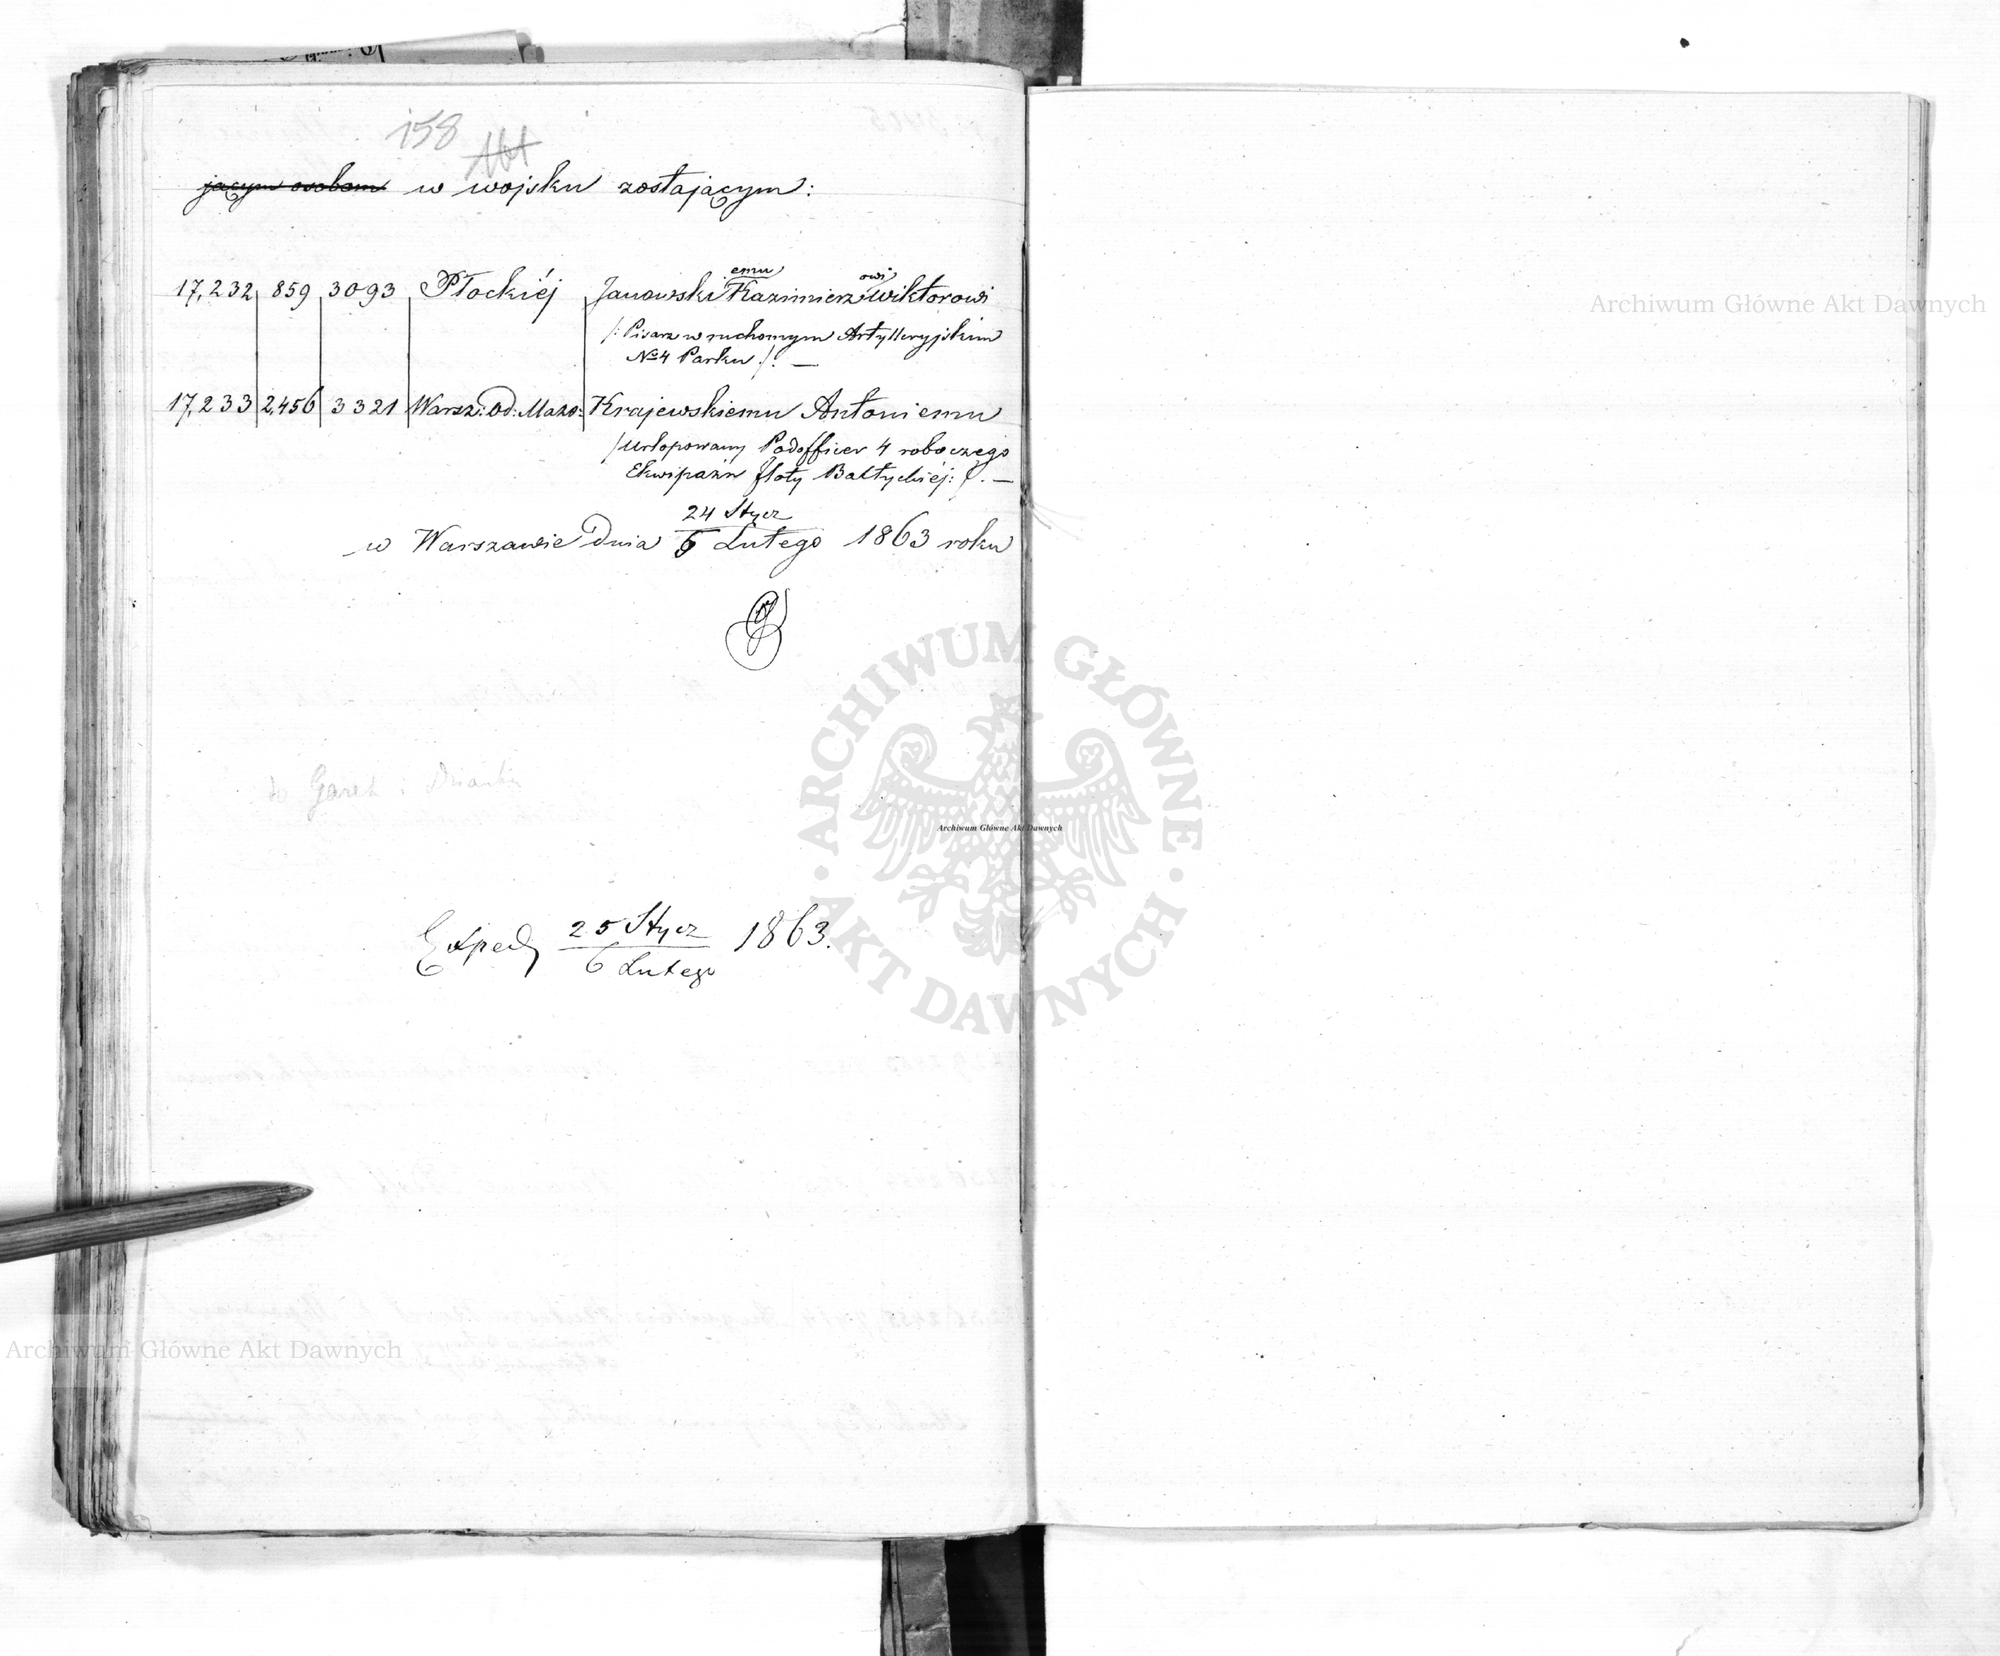 158
161
jącym osobom w wojsku zostającym:
17,232 859 3093 Płockiéj Janowskiemu Kazimierzowi Wiktorowi
/: Pisarz w ruchomym Artylleryjskim
№ 4 Parku :/. —
17,233 2,456 3321 Warsz: Od: Mazo: Krajewskiemu Antoniemu
/ Urlopowany Podofficer 4 roboczego
Ekwipażu floty Bałtyckiéj: /. —
24 Stycz
w Warszawie Dnia 6 Lutego 1863 roku
do Gazet i Dziennika
Exped 25 Stycz 1863.
6 Lutego
Archiwum Główne Akt Dawnych
ARCHIWUM GŁÓWNE · AKT DAWNYCH ·
Archiwum Główne Akt Dawnych
Archiwum Główne Akt Dawnych